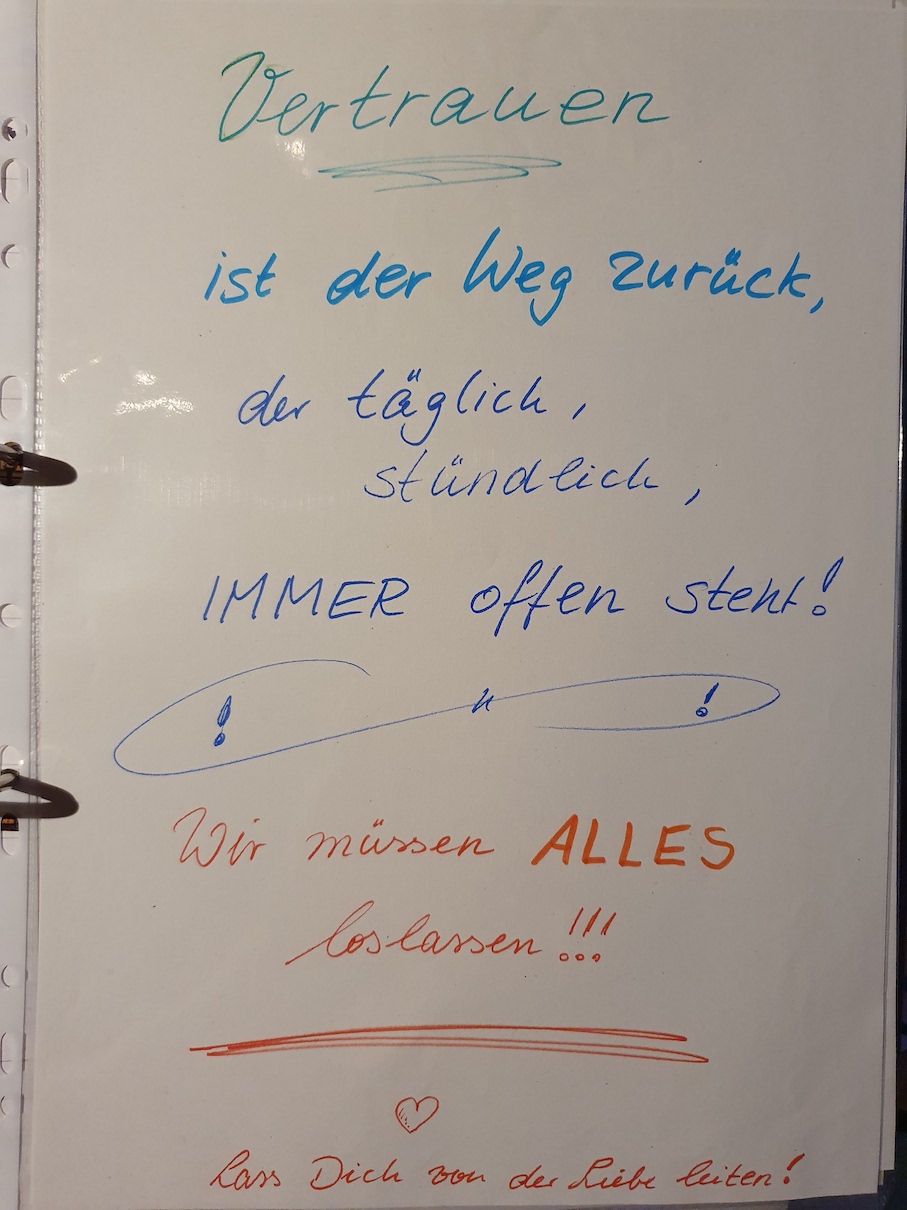 Vertrauen
ist der Weg zurück,
der täglich,
stündlich,
IMMER offen steht!
! " !
Wir müssen ALLES
loslassen!!!
Lass Dich von der Liebe leiten!